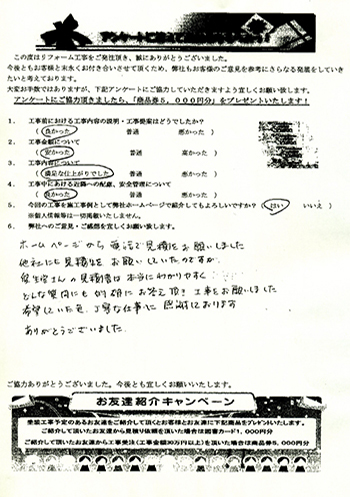 アンケートに
この度はリフォーム工事をご発注頂き、誠にありがとうございました。
今後ともお客様と末永くお付き合いさせて頂くため、弊社もお客様のご意見を参考にさらなる発展をしていき
たいと考えております。
大変お手数ではありますが、下記アンケートにご協力していただきますよう宜しくお願い致します。
アンケートにご協力頂きましたら、「商品券5,000円分」をプレゼントいたします!
1. 工事前における工事内容の説明・工事提案はどうでしたか?
( 良かった 普通 悪かった )
2. 工事金額について
( 安かった 普通 高かった )
3. 工事内容について
( 満足な仕上がりでした 普通 悪かった )
4. 工事中における近隣への配慮、安全管理について
( 良かった 普通 悪かった )
5. 今回の工事を施工事例として弊社ホームページで紹介してもよろしいですか? ( はい いいえ )
※個人情報等は一切掲載いたしません。
6. 弊社へのご意見・ご感想を宜しくお願い致します。
ホームページから 電話で見積をお願いしました
他社にも見積りを お願いしていたのですが、
さんの見積書は 本当にわかりやすく
どんな質問にも 的確にお答え頂き 工事をお願いしました
希望していた色、丁寧な仕事に 感謝しております
ありがとうございました.
ご協力ありがとうございました。今後とも宜しくお願いいたします。
お友達紹介キャンペーン
塗装工事予定のあるお友達をご紹介して頂くとお客様とお友達に下記商品をプレゼントいたします。
ご紹介して頂いたお友達から見積り依頼を頂いた場合は図書カード1,000円分
ご紹介して頂いたお友達から工事受注(工事金額30万円以上)を頂いた場合は商品券5,000円分